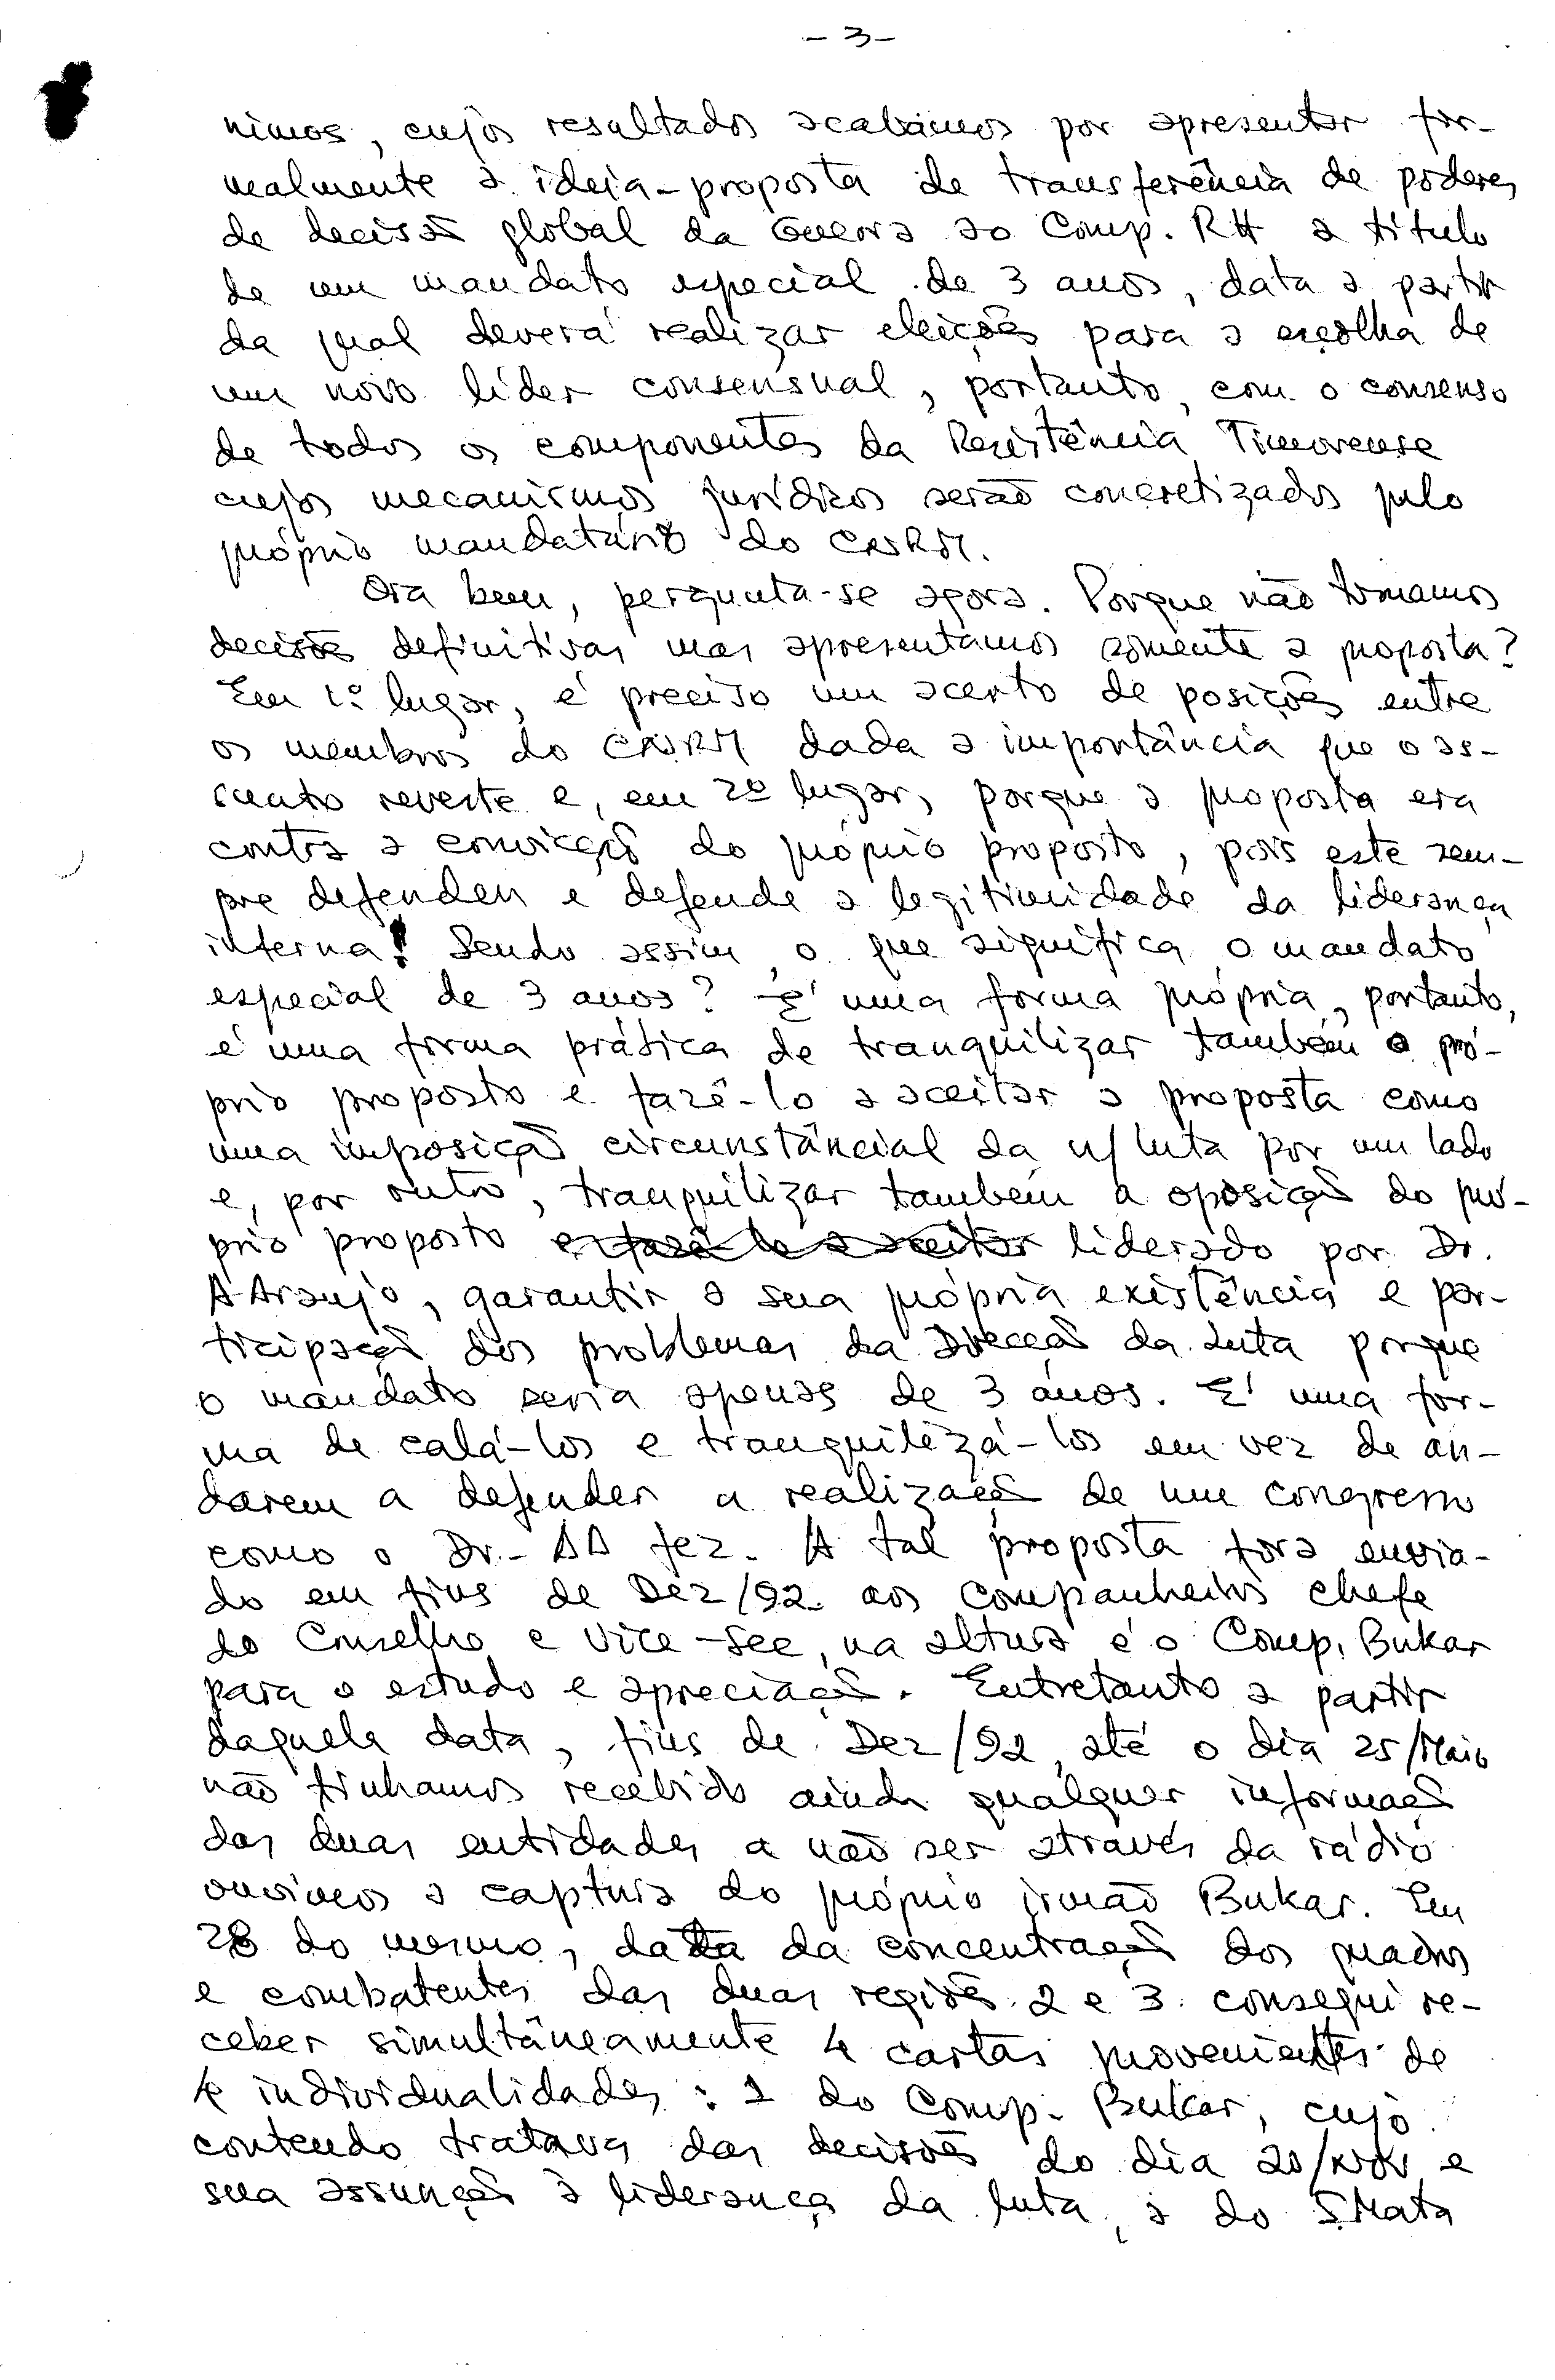 - 3 -
nimos, cujos resultados acabámos por apresentar for-
malmente a ideia-proposta de transferência de poderes
de decisão global da Guerra ao Comp. RH a titulo
de um mandato especial de 3 anos, data a partir
da qual deverá realizar eleições para a escolha de
um novo líder consensual, portanto, com o consenso
de todos os componentes da Resistência Timorense
cujos mecanismos jurídicos serão concretizados pelo
próprio mandatário do CNRM.
Ora bem, pergunta-se agora. Porque não tomamos
decisões definitivas mas apresentamos somente a proposta?
Em 1º lugar, é preciso um acerto de posições entre
os membros do CNRM dada a importância que o as-
sunto reveste e, em 2º lugar, porque a proposta era
contra a convicção do próprio proposto, pois este sem-
pre defendeu e defende a legitimidade da liderança
interna! Sendo assim, o que significa o mandato
especial de 3 anos? É uma forma própria, portanto,
é uma forma prática de tranquilizar também o pró-
prio proposto e fazê-lo a aceitar a proposta como
uma imposição circunstâncial da n/ luta por um lado
e, por outro, tranquilizar também a oposição do pró-
prio proposto e fazê-lo a aceitar liderado por Dr.
A Araujo, garantir a sua própria existência e par-
ticipação dos problemas da Direcção da Luta porque
o mandato seria apenas de 3 anos. É uma for-
ma de calá-los e tranquilizá-los em vez de an-
darem a defender a realização de um congresso
como o Dr. AA fez. A tal proposta fora envia-
do em fins de Dez/92 aos companheiros chefe
do Conselho e Vice-Sec, na altura é o Comp. Bukar
para o estudo e apreciação. Entretanto a partir
daquela data, fins de Dez/92, até o dia 25/Maio
não tinhamos recebido ainda qualquer informação
das duas entidades a não ser através da rádio
ouvimos a captura do próprio irmão Bukar. Em
28 do mesmo, data da concentração dos quadros
e combatentes das duas regiões 2 e 3 consegui re-
ceber simultâneamente 4 cartas provenientes de
4 individualidades: 1 do Comp. Bukar, cujo
conteudo tratava das decisões do dia 20/Nov e
sua assunção à liderança da luta, a do S. Mata